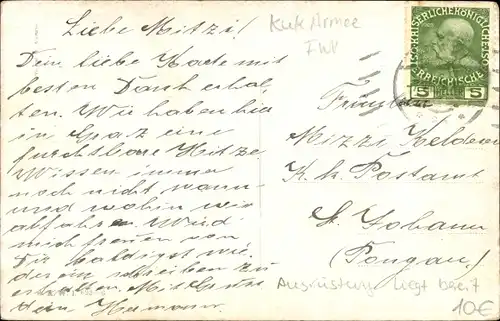 Liebe Mitzi!
Dein liebe Karte mit
besten Dank erhal-
ten. Wir haben hier
in Graz eine
furchtbare Hitze.
Wissen immer
noch nicht wann
und wohin wir
abfahren. Würd
mich freuen von
Dir baldigst wie-
der ein schreiben zu
erhalten. Mit Gruss
dein Hermann.
KuK Armee
I WK
KAISERLICHE KÖNIGLICHE
ÖSTERREICHISCHE
5 5
Fräulein
Mizzi
K. k. Postamt
St. Johann
(Pongau)
Ausrüstung liegt bereit
10€